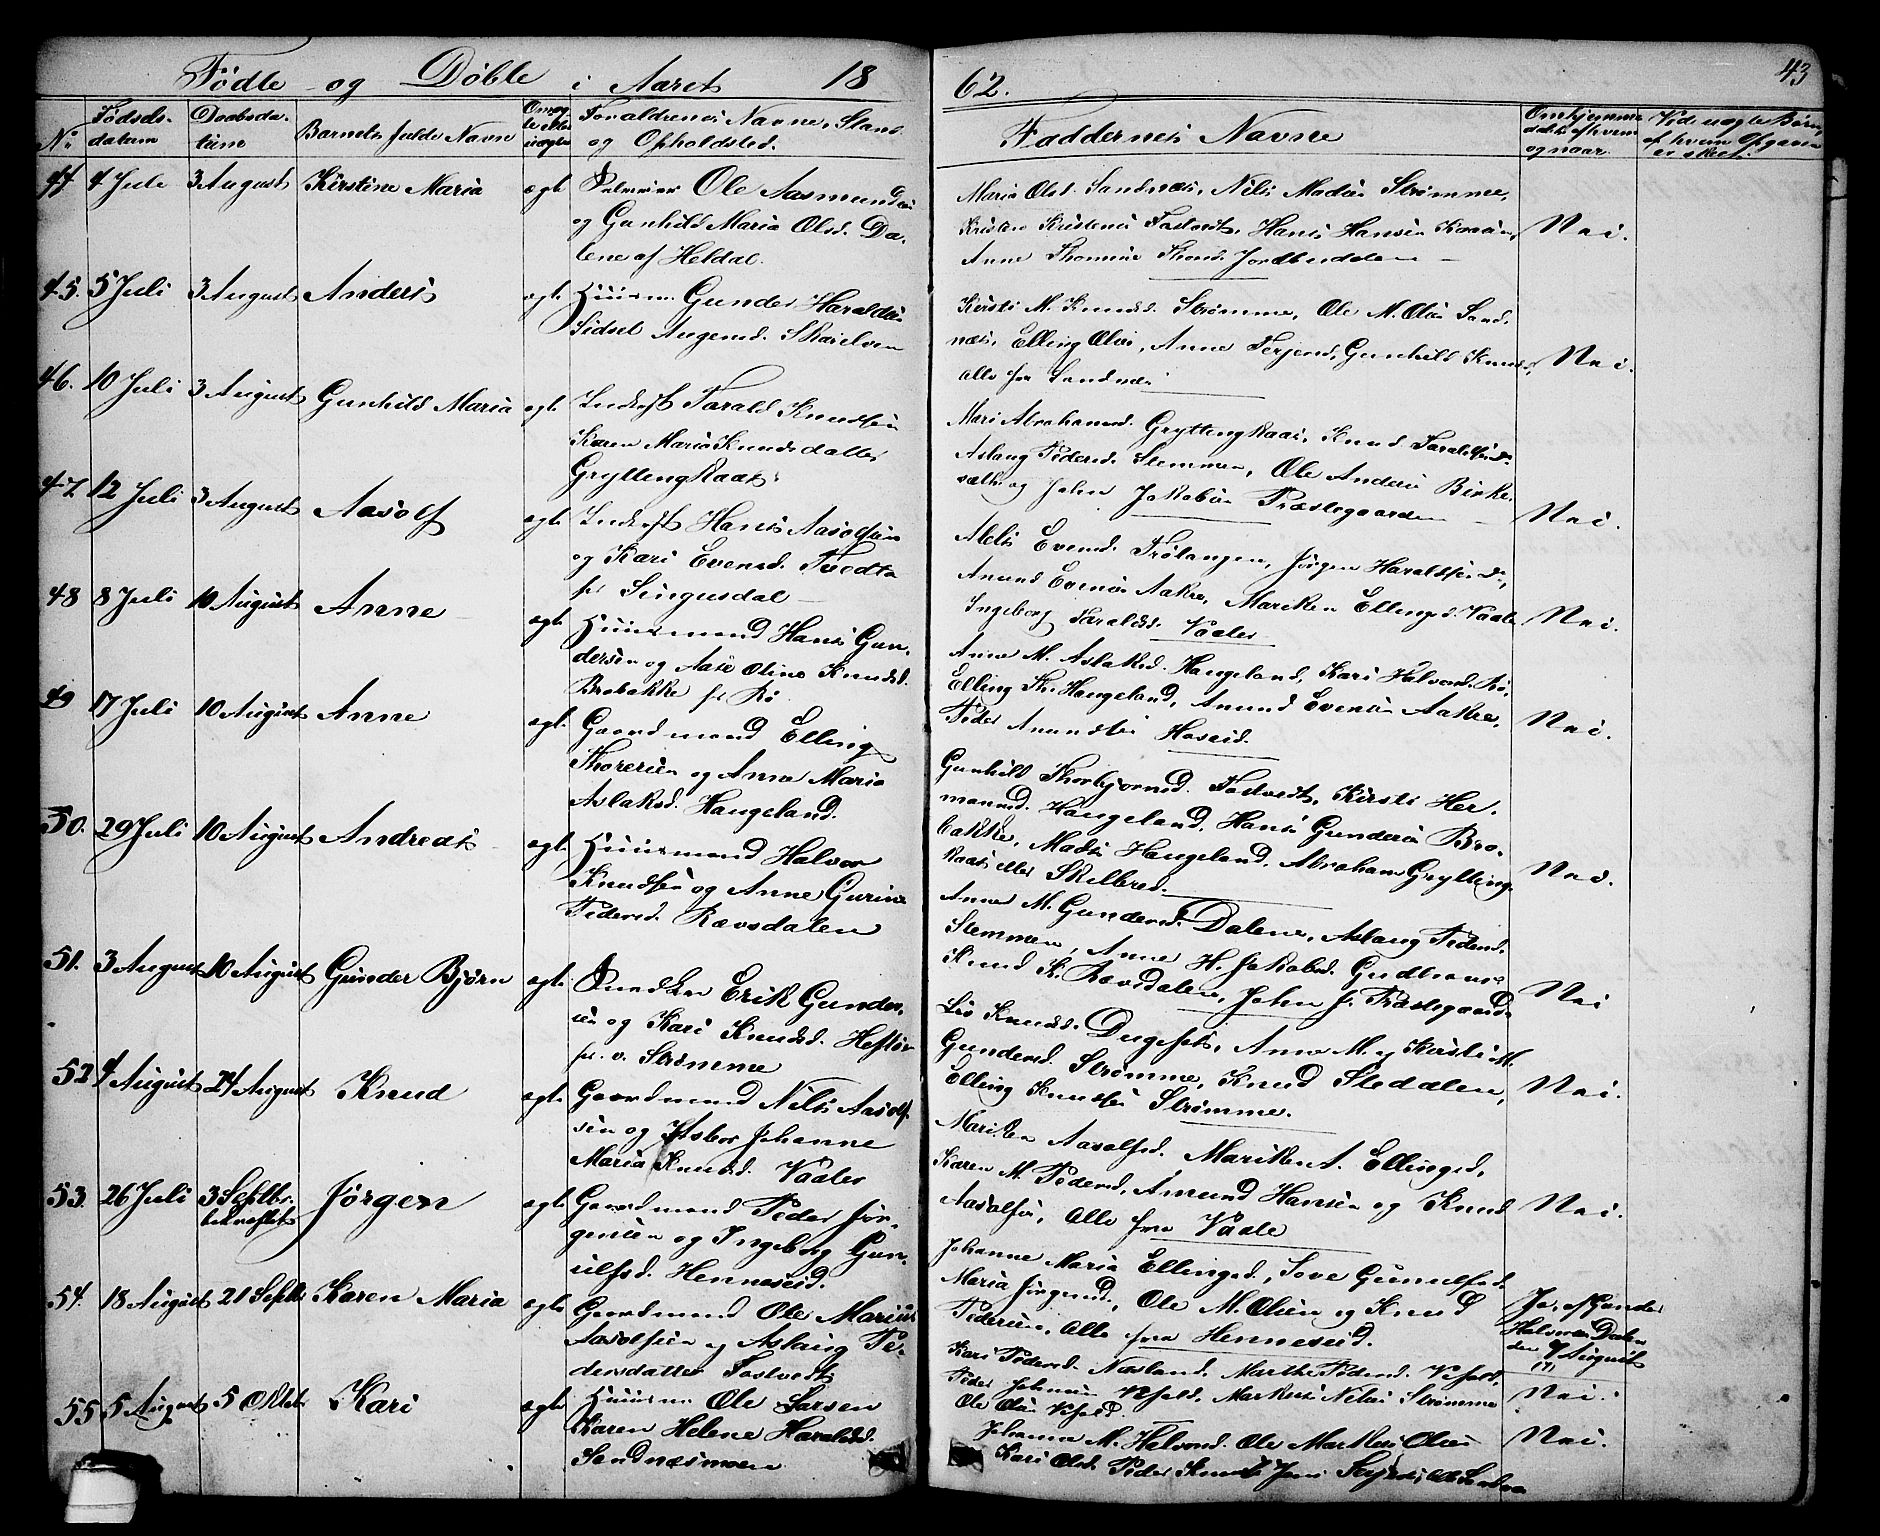 Födte og Döbte i Aaret 18
62.
43
No
Fødsels-
datum
Daabsda-
tum
Barnets fulde Navn
Om æg-
te eller
uægte
Forældrenes Navne, Stand
og Opholdsted.
Faddernes Navne
Om hjemme
døbt, af hvem
og naar.
Ved uægte Børn,
af hvem Opgaven
er skeet.
44 4 Juli 3 August Kirstine Maria ægte Ole Aasmundsen
og Gunhild Maria Olsd. Da-
lene af Heldal.
Maria Olsd. Sandnæs, Nils Madsen Strømme,
Kristen Kristensen Fostvedt, Hans Hansen
Anne Jordbudalen
Nei.
45. 5 Juli 3 August Anders ægte Huusm. Gunder Haraldsen
Sidsel Augensd. Skarelven
Kirsti M. Knudsd. Strømme, Ole M. Olsen Sand-
næs, Elling Olsen, Anne Terjesd, Gunhild Knudsd,
alle fra Sandnæs
Nei.
46. 10 Juli 3 August Gunhild Maria ægte Inderst Tarald Knudsen
Karen Maria Knudsdatter
Gryttengkaas
Mari Abrahamsd. Gryttengkaas, Knud Taraldsen
Aslaug Pedersd. Stemmen, Ole Andersen Birke-
sælte og John Jakobsen Præstegaarden
Nei.
47. 12 Juli 3 August Aasolf ægte Inderst Hans Aasolfsen
og Kari Evensd. Tvedta
fr Singusdal
Evensd. Frølangen, Jørgen Haraldsen
Anund Evensen Aakre, Mariken Ellingsd. Vaale
Ingeborg Taraldsd. Vaaler
Nei.
48 8 Juli 10 August Anne ægte Huusmand Hans Gun-
dersen og Aase Oline Knudsd.
Brobakke fr Bø
Anne M. Aslaksd. Haugeland, Kari Halvorsd. Bø,
Elling Th. Haugeland, Anund Evensen Aakre,
Peder Anundsen Haseid.
Nei.
49 17 Juli 10 August Anne ægte Gaardmand Elling
Thoresen og Anne Maria
Aslaksd. Haugeland.
Gunhild Thorbjørnsd. Fostvedt, Kirsti Her-
mansd. Haugeland, Hans Gundersen Bro-
bakke, Mads Haugeland, Abraham Grytting-
kaas eller Skilbred.
Nei.
50. 29 Juli 10 August Andreas ægte Huusmand Halvor
Knudsen og Anne Gurine
Pedersd. Rævsdalen
Anne M. Gundersd. Dalene, Aslaug Pedersd.
Stemmen, Anne H. Jakobsd. Gudbrans
Knud K. Rævsdalen, John J. Præstegaarden
Nei
51. 3 August 10 August Gunder Björn ægte Erik Gunder-
sen og Kari Knudsd. Heftøe
fr. v. Strømme
Liv Knudsd. Dugesets, Anne M. og Kirsti M.
Gundersd. Strømme, Knud Stedalen,
Elling Knudsen Strømme.
Nei.
52 4 August 24 August Knud ægte Gaardmand Nils Aasolf-
sen og Asbor Johanne
Maria Knudsd. Vaaler
Mariken Aasolfsd. Mariken A. Ellingsd,
Karen M. Pedersd, Amund Hansen og Knud
Aasolfsen, Alle fra Vaale
Nei.
53. 26 Juli 3 Septbr.
bekræftet Jørgen ægte Gaardmand Peder Jør-
gensen og Ingeborg Gun-
ulfsd. Henneseid.
Johanne Maria Ellingsd, Tove Gunulfsd.
Maria Jørgensd, Ole M. Olsen og Knud
Pedersen, alle fra Henneseid.
Ja, af Gunder
Halvorsen Dalen
den 7 August
54. 18 August 21 Septb Karen Maria ægte Gaardmand Ole Marius
Aasolfsen og Aslaug Pe-
dersdatter Fostvedt
Kari Pedersd. Næsland, Marthe Pedersd. Vefald,
Peder Johnsen Vefald, Markus Nilsen Strømme
Ole Olsen Vefald.
Nei.
55 5 August 5 Oktbr Kari ægte Huusm. Ole Larsen
Karen Helene Haraldsd.
Sandnæsmoen
Johanne M. Halvorsd. Ole Markus Olsen
Kari Olsd. Peder Knudsen, Jens
Nei.